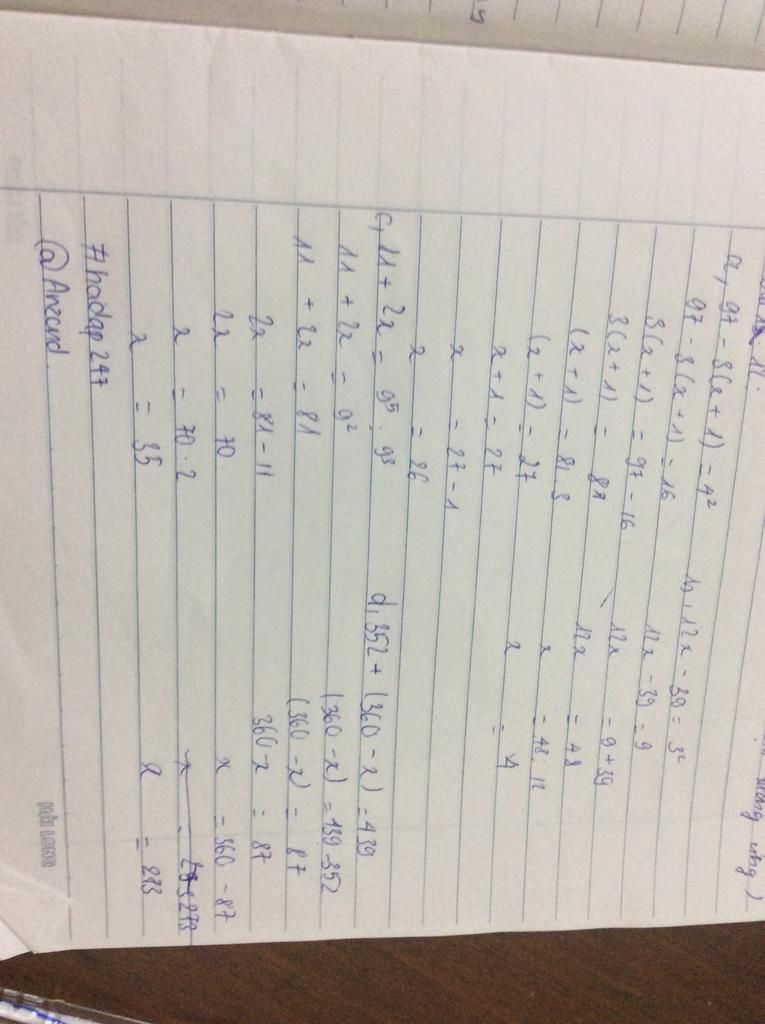 a, 97 - 3(x + 1) = 4²
97 - 3(x + 1) = 16
3(x + 1) = 97 - 16
3(x + 1) = 81
(x + 1) = 81:3
(x + 1) = 27
x + 1 = 27
x = 27 - 1
x = 26
b, 12x - 39 = 3²
12x - 39 = 9
12x = 9 + 39
12x = 48
x = 48:12
x = 4
c, 11 + 2x = 9⁵ : 9³
11 + 2x = 9²
11 + 2x = 81
2x = 81 - 11
2x = 70
x = 70 : 2
x = 35
d, 352 + (360 - x) = 439
(360 - x) = 439 - 352
(360 - x) = 87
360 - x = 87
x = 360 - 87
x = 273
7/hoidap 247
@ Anzard
HẢI LONG